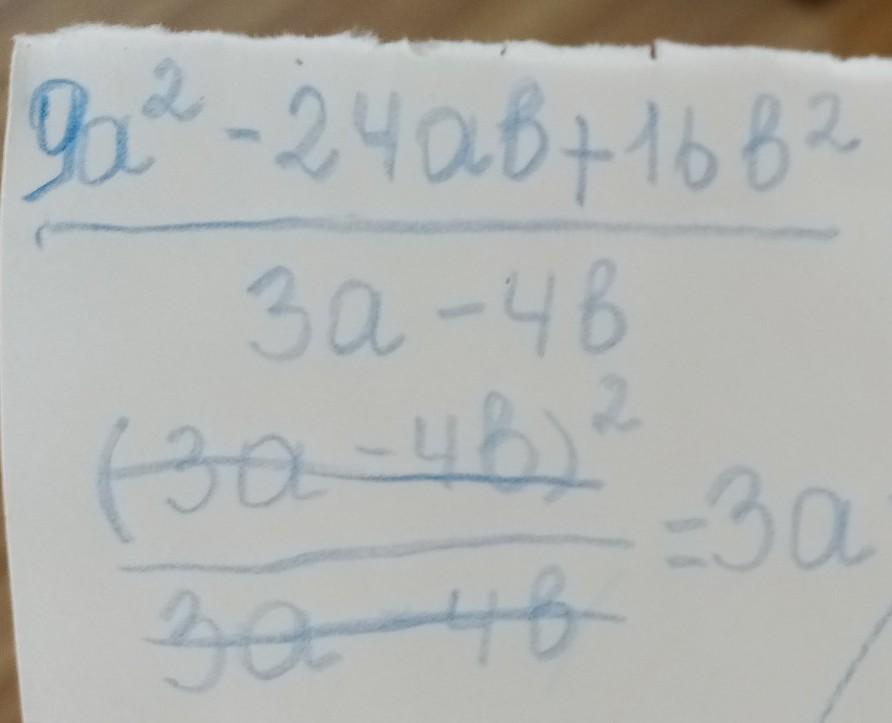 9a² - 24ab + 16b²
3a - 4b
(3a - 4b)²
= 3a
3a - 4b